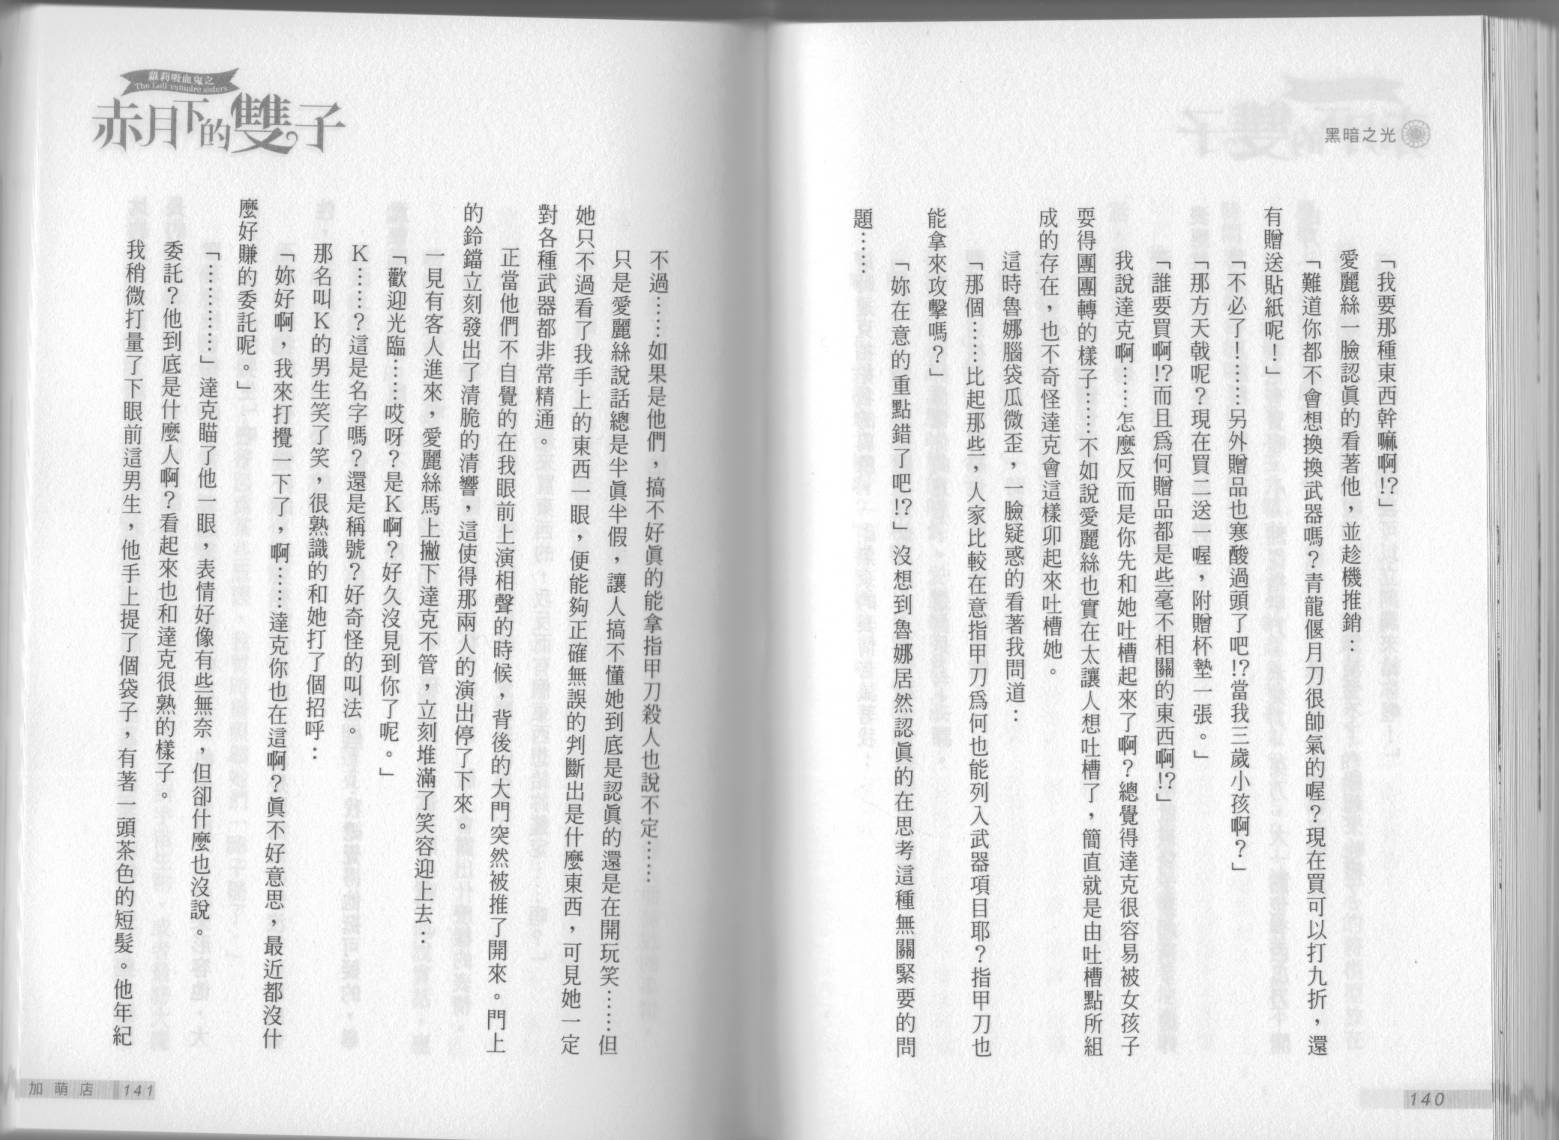 黑暗之光
「我要那種東西幹嘛啊!?」
愛麗絲一臉認眞的看著他，並趁機推銷：
「難道你都不會想換換武器嗎？青龍偃月刀很帥氣的喔？現在買可以打九折，還
有贈送貼紙呢！」
「不必了！……另外贈品也寒酸過頭了吧!?當我三歲小孩啊？」
「那方天戟呢？現在買二送一喔，附贈杯墊一張。」
「誰要買啊!?而且爲何贈品都是些毫不相關的東西啊!?」
我說達克啊……怎麼反而是你先和她吐槽起來了啊？總覺得達克很容易被女孩子
耍得團團轉的樣子……不如說愛麗絲也實在太讓人想吐槽了，簡直就是由吐槽點所組
成的存在，也不奇怪達克會這樣卯起來吐槽她。
這時魯娜腦袋瓜微歪，一臉疑惑的看著我問道：
「那個……比起那些，人家比較在意指甲刀爲何也能列入武器項目耶？指甲刀也
能拿來攻擊嗎？」
「妳在意的重點錯了吧!?」沒想到魯娜居然認眞的在思考這種無關緊要的問
題……
140
蘿莉吸血鬼之
The Loli vampire sisters
赤月下的雙子
不過……如果是他們，搞不好眞的能拿指甲刀殺人也說不定……
只是愛麗絲說話總是半眞半假，讓人搞不懂她到底是認眞的還是在開玩笑……但
她只不過看了我手上的東西一眼，便能夠正確無誤的判斷出是什麼東西，可見她一定
對各種武器都非常精通。
正當他們不自覺的在我眼前上演相聲的時候，背後的大門突然被推了開來。門上
的鈴鐺立刻發出了清脆的清響，這使得那兩人的演出停了下來。
一見有客人進來，愛麗絲馬上撇下達克不管，立刻堆滿了笑容迎上去：
「歡迎光臨……哎呀？是Ｋ啊？好久沒見到你了呢。」
Ｋ……？這是名字嗎？還是稱號？好奇怪的叫法。
那名叫Ｋ的男生笑了笑，很熟識的和她打了個招呼：
「妳好啊，我來打攪一下了，啊……達克你也在這啊？眞不好意思，最近都沒什
麼好賺的委託呢。」
「…………」達克瞄了他一眼，表情好像有些無奈，但卻什麼也沒說。
委託？他到底是什麼人啊？看起來也和達克很熟的樣子。
我稍微打量了下眼前這男生，他手上提了個袋子，有著一頭茶色的短髮。他年紀
加萌店 141